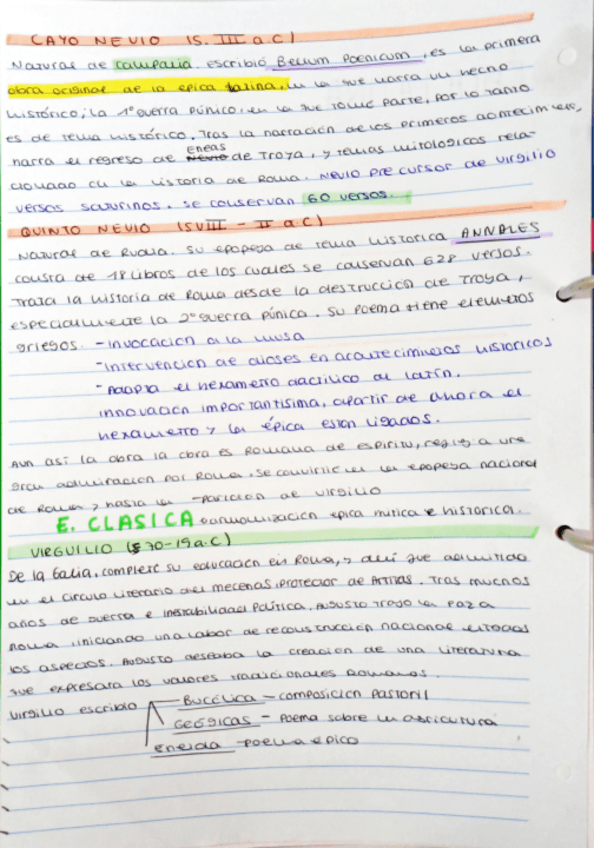 CAYO NEVIO (S. III a.C)
Natural de Campania. escribió Bellum Poenicum, es la primera
obra original de la épica latina, en la que narra un hecho
histórico; la 1ª guerra púnica, en la que tomó parte, por lo tanto
es de tema histórico. Tras la narración de los primeros acontecimientos,
narra el regreso de Nevio eneas de Troya, y temas mitologicos rela-
cionado en la historia de Roma. Nevio precursor de Virgilio
versos saturinos. se conservan 60 versos.
QUINTO NEVIO (SVIII - II a.C)
Natural de Rudia. Su epopeya de tema historica ANNALES
consta de 18 libros de los cuales se conservan 628 versos.
Trata la historia de Roma desde la destrucción de Troya,
especialmente la 2ª guerra púnica. Su poema tiene elementos
griegos. - invocación a la musa
- Intervención de dioses en acontecimientos historicos
- Adapta el hexametro dactilico al latín.
innovación importantísima, apartir de ahora el
hexametro y la épica estan ligados.
Aun así la obra la obra es Romana de espiritu, a una
gran admiracion por Roma. Se convirtie en la epopeya nacional
de Roma y hasta la -parición de Virgilio
E. CLASICA épica mitica e historica.
VIRGUILIO (§ 70-19 a.C)
De la Galia, completó su educación en Roma, y allí fue admitido
en el circulo literario del mecenas, protector de Artitas. Tras muchos
años de guerra e inestabilidad política. Augusto trajo la paz a
Roma iniciando una labor de reconstrucción nacional en todos
los aspectos. Augusto deseaba la creación de una literatura
que expresara los valores tradicionales Romanos.
Virgilio escribio Bucólica - composición pastoril
Geógicas - poema sobre la agricultura
eneida - poema epico